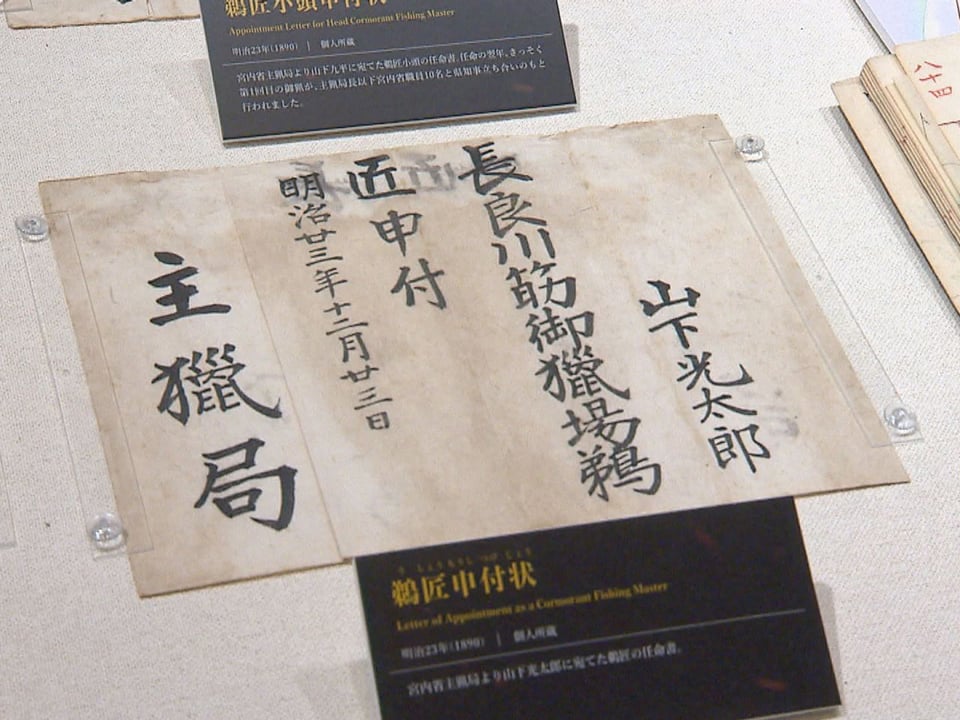 鵜匠小頭申付状
Appointment Letter for Head Cormorant Fishing Master
明治23年(1890) | 個人所蔵
宮内省主猟局より山下九平に宛てた鵜匠小頭の任命書。任命の翌年、さっそく
第1回目の御猟が、主猟局長以下宮内省職員10名と県知事立ち合いのもと
行われました。
山下光太郎
長良川筋御獵場鵜
匠申付
明治廿三年十二月廿三日
主獵局
八十四
うしょうもうしつけじょう
鵜匠申付状
Letter of Appointment as a Cormorant Fishing Master
明治23年(1890) | 個人所蔵
宮内省主猟局より山下光太郎に宛てた鵜匠の任命書。